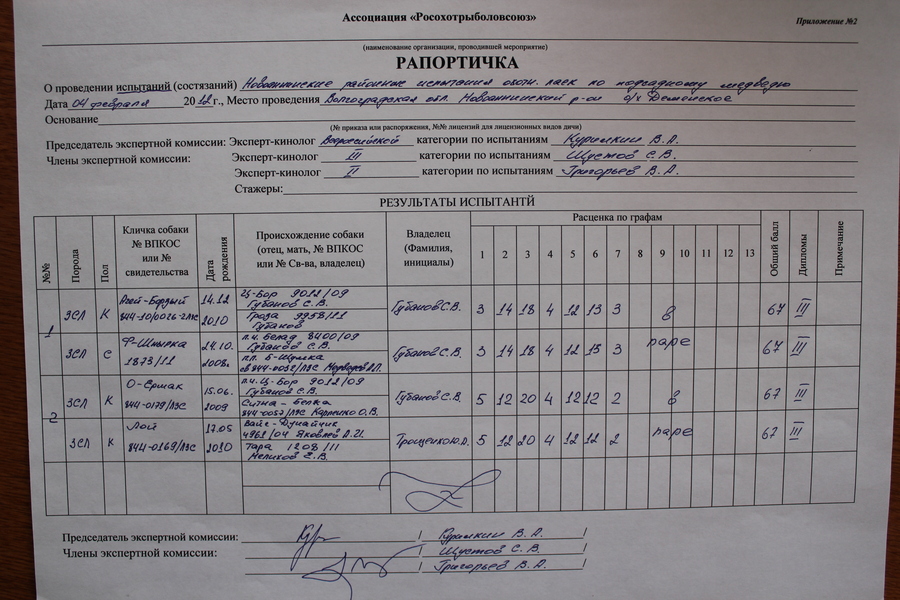 Ассоциация «Росохотрыболовсоюз»
Приложение №2
(наименование организации, проводившей мероприятие)
РАПОРТИЧКА
О проведении испытаний (состязаний) Новоаннинские районные испытания охотн. лаек по подсадному медведю
Дата 04 февраля 2012 г., Место проведения Волгоградская обл. Новоаннинской р-он о/х
Основание
(№ приказа или распоряжения, №№ лицензий для лицензионных видов дичи)
Председатель экспертной комиссии: Эксперт-кинолог Всероссийской категории по испытаниям Куримкин В.А.
Члены экспертной комиссии: Эксперт-кинолог III категории по испытаниям Шустов С.В.
Эксперт-кинолог II категории по испытаниям Григорьев В.А.
Стажеры:
РЕЗУЛЬТАТЫ ИСПЫТАНТЙ
№№ Порода Пол Кличка собаки № ВПКОС или № свидетельства Дата рождения Происхождение собаки (отец, мать, № ВПКОС или № Св-ва, владелец) Владелец (Фамилия, инициалы) Расценка по графам Общий балл Дипломы Примечание
1 2 3 4 5 6 7 8 9 10 11 12 13
1
ЗСЛ К 14.12 2010 Ц-Бор 9012/09 Губанов С.В. Гроза 9958/11 Губанов Губанов С.В. 3 14 18 4 12 13 3 в 67 III
ЗСЛ С 1873/11 24.10. 2008г. п.ч. 8400/09 Губанов С.В. п.п. Б-Шумка Губанов С.В. 3 14 18 4 12 13 3 паре 67 III
2
ЗСЛ К О-Ермак 844-0179/ЛЗС 15.06. 2009 п.ч. Ц-Бор 9012/09 Губанов С.В. Белка Карпенко О.В. Губанов С.В. 5 12 20 4 12 12 2 в 67 III
ЗСЛ К Лой 844-0169/ЛЗС 17.05 2010 Вайс-Дунайчик 4961/04 Яковлев Тара 1208/11 Мелихов С.В. Трощенко Ю.А. 5 12 20 4 12 12 2 паре 67 III
Председатель экспертной комиссии: / Куримкин В.А. /
Члены экспертной комиссии: / Шустов С.В. /
/ Григорьев В.А. /